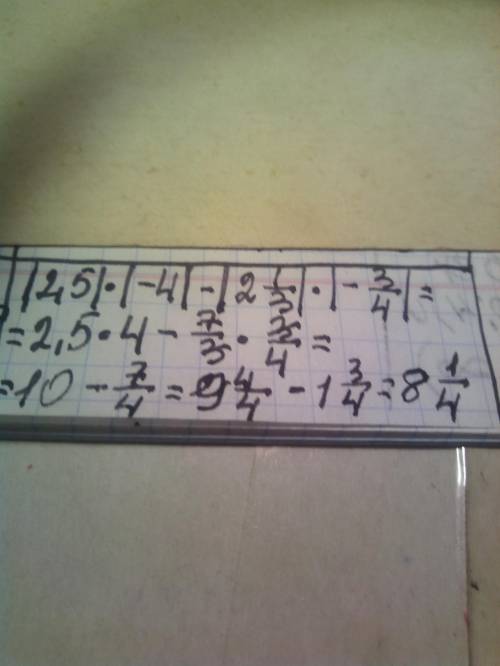 |2,5|·|-4|-|2 1/3|·|-3/4|=
=2,5·4-7/3·3/4=
=10-7/4=9 4/4-1 3/4=8 1/4